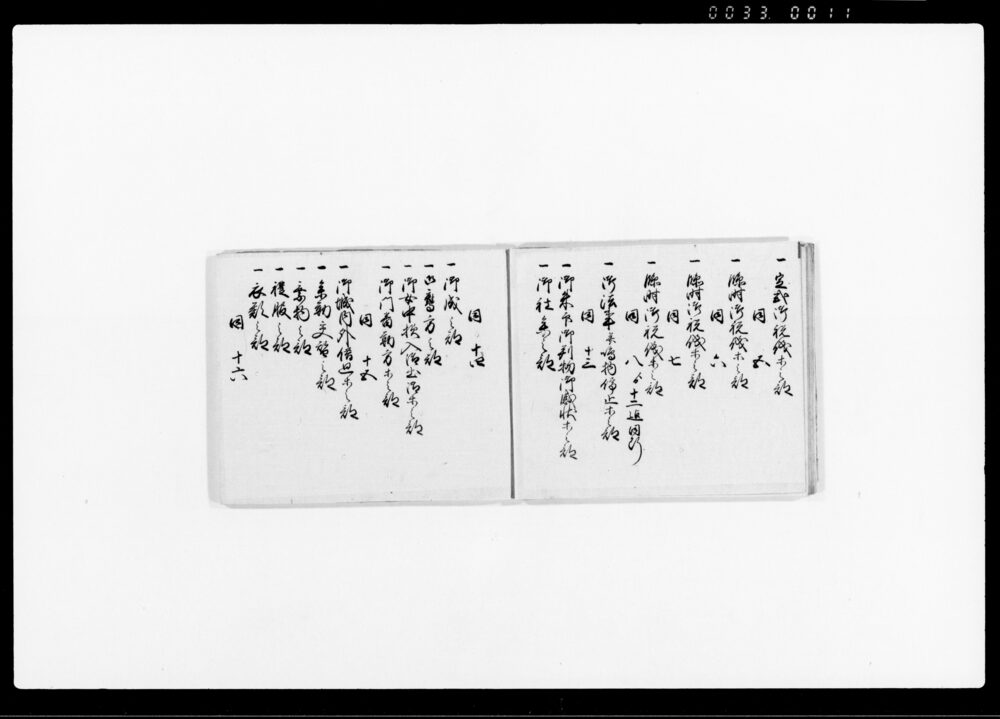 0033. 0011
一 定式御祝儀等之部
同 五
一 臨時御祝儀等之部
同 六
一 臨時御祝儀等之部
同 七
一 臨時御祝儀等之部
同 八ゟ十二迄同断
一 御法事并鳴物停止等之部
同 十三
一 御朱印御判物御、状等之部
一 御社参之部
同 十四
一 御成之部
一 御鷹方之部
一 御女中様入御出御等之部
一 御門番勤方等之部
同 十五
一 御城内外借地等之部
一 参勤交替之部
一 乗物之部
一 礼服之部
一 衣類之部
同 十六